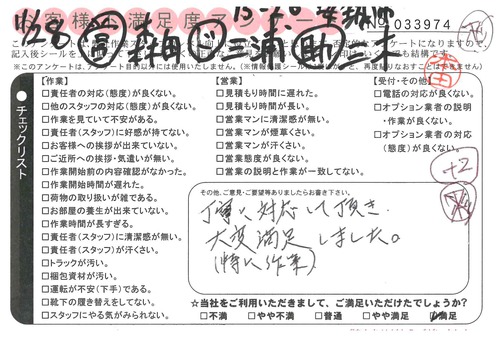 お客様の満足度
№ 033974
記入後シールを
アンケートになりますので、
結構です。
※このアンケートは、アンケート目的以外には使用いたしません。（※情報保護シールに
チェックリスト
【作業】
□責任者の対応(態度)が良くない。
□他のスタッフの対応(態度)が良くない。
□作業を見ていて不安がある。
□責任者(スタッフ)に好感が持てない。
□お客様への挨拶が出来ていない。
□ご近所への挨拶・気遣いが無い。
□作業開始前の内容確認がなかった。
□作業開始時間が遅れた。
□荷物の取り扱いが雑である。
□お部屋の養生が出来ていない。
□作業時間が長すぎる。
□責任者(スタッフ)に清潔感が無い。
□責任者(スタッフ)が汗くさい。
□トラックが汚い。
□梱包資材が汚い。
□運転が不安(下手)である。
□靴下の履き替えをしてない。
□スタッフにやる気がみられない。
【営業】
□見積もり時間に遅れた。
□見積もり時間が長い。
□営業マンに清潔感が無い。
□営業マンが煙草くさい。
□営業マンが汗くさい。
□営業態度が良くない。
□営業の説明と作業が一致してない。
【受付・その他】
□電話の対応が良くない。
□オプション業者の説明
・作業が良くない。
□オプション業者の対応
(態度)が良くない。
+2
その他、ご意見・ご要望等ありましたらお書き下さい。
丁寧に対応して頂き
大変満足しました。
(特に作業)
☆当社をご利用いただきまして、ご満足いただけたでしょうか?
□不満 □やや不満 □普通 □やや満足 □満足